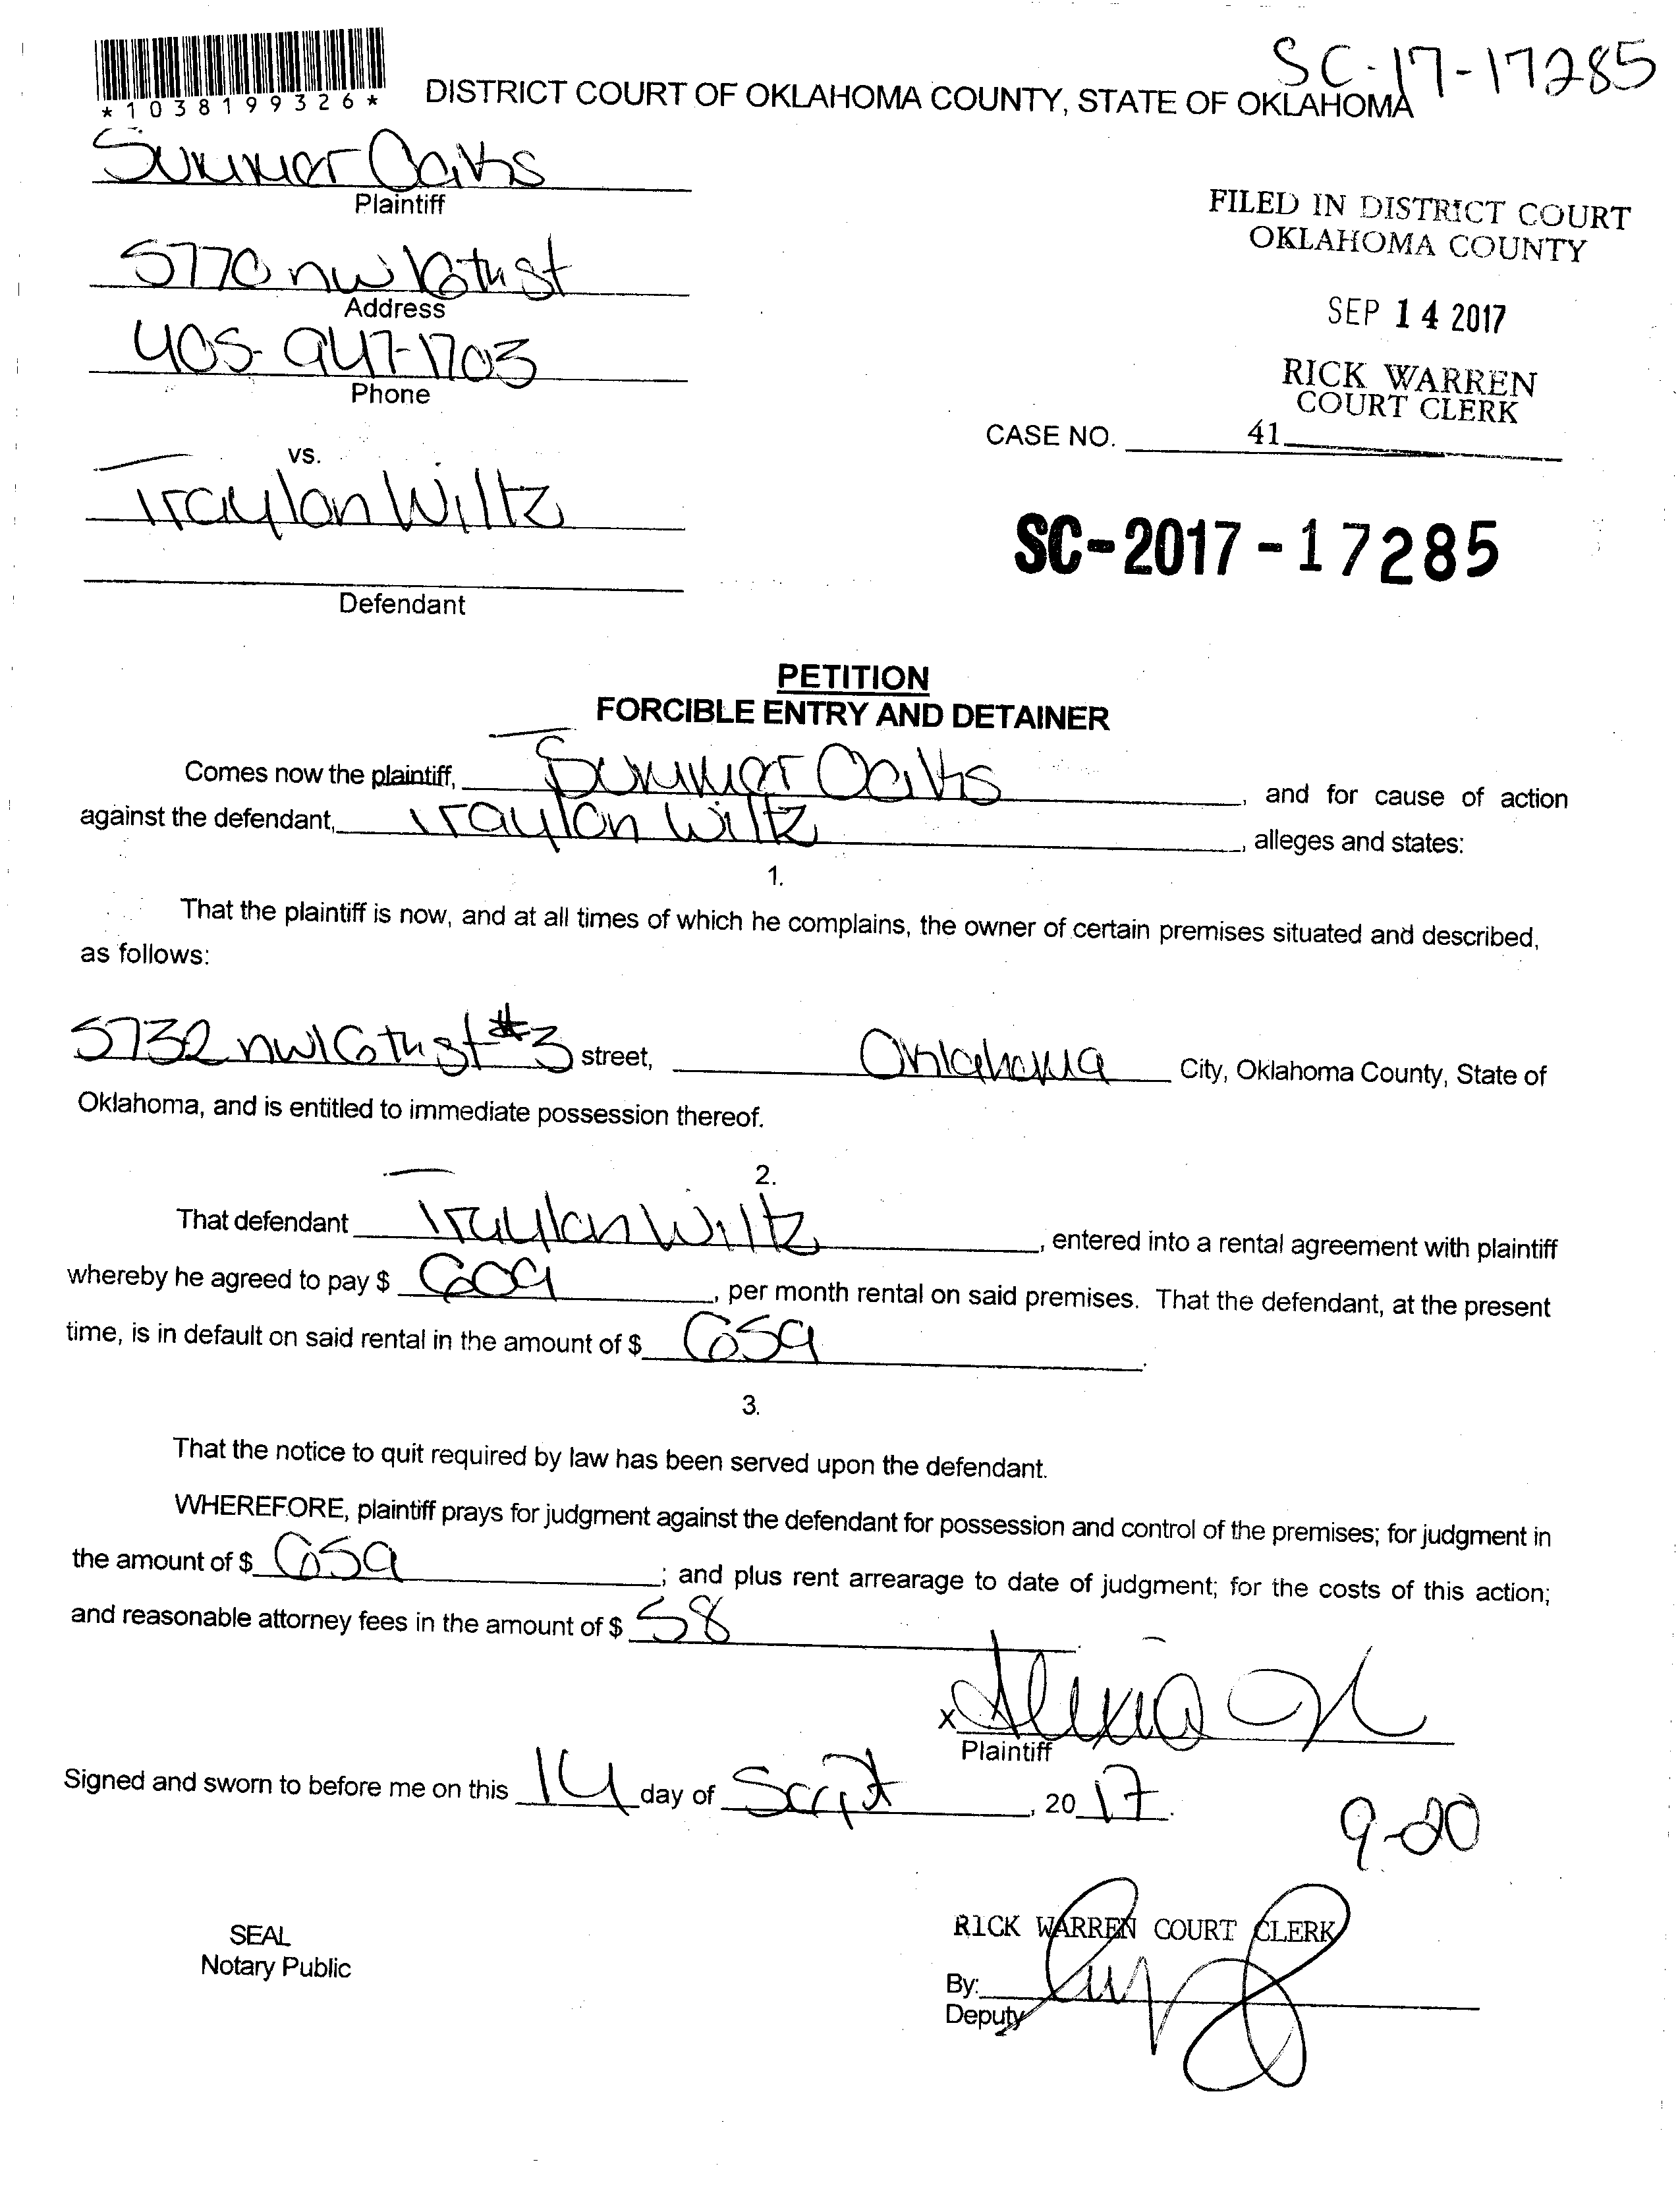 SC-17-17285
*1038199326*
DISTRICT COURT OF OKLAHOMA COUNTY, STATE OF OKLAHOMA
Summer Oaks
Plaintiff
5770 nw 16th st
Address
405-947-1703
Phone
FILED IN DISTRICT COURT
OKLAHOMA COUNTY
SEP 14 2017
RICK WARREN
COURT CLERK
CASE NO. 41
vs.
Traylon Wiltz
Defendant
SC-2017-17285
PETITION
FORCIBLE ENTRY AND DETAINER
Comes now the plaintiff, Summer Oaks, and for cause of action
against the defendant, Traylon Wiltz, alleges and states:
1.
That the plaintiff is now, and at all times of which he complains, the owner of certain premises situated and described,
as follows:
5732 nw 16th st #3 street, Oklahoma City, Oklahoma County, State of
Oklahoma, and is entitled to immediate possession thereof.
2.
That defendant Traylon Wiltz, entered into a rental agreement with plaintiff
whereby he agreed to pay $ 609, per month rental on said premises. That the defendant, at the present
time, is in default on said rental in the amount of $ 659.
3.
That the notice to quit required by law has been served upon the defendant.
WHEREFORE, plaintiff prays for judgment against the defendant for possession and control of the premises; for judgment in
the amount of $ 659; and plus rent arrearage to date of judgment; for the costs of this action;
and reasonable attorney fees in the amount of $ 58.
x Alexia
Plaintiff
Signed and sworn to before me on this 14 day of Sept, 2017.
9-20
SEAL
Notary Public
RICK WARREN COURT CLERK
By:
Deputy